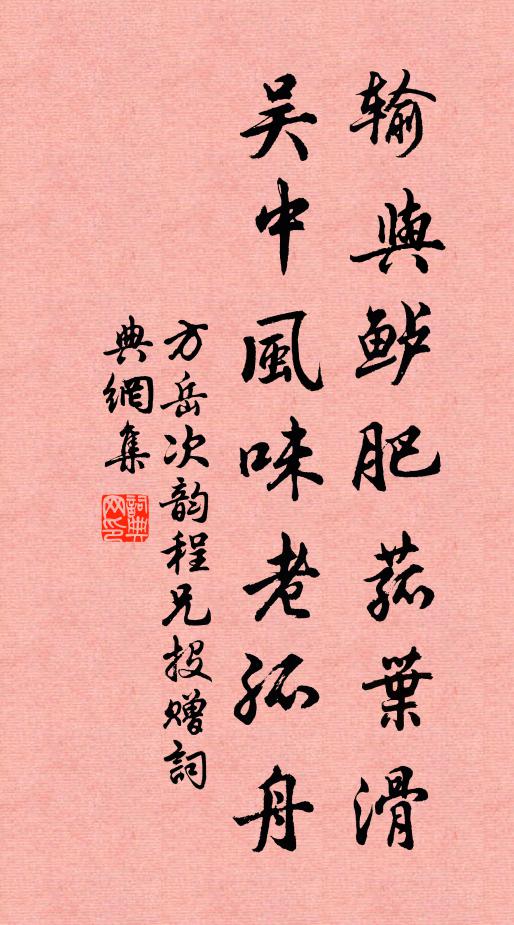 输與鲈肥菰葉滑
吴中風味老孤舟
方岳次韵程兄投赠詞
典網集
詞典网印